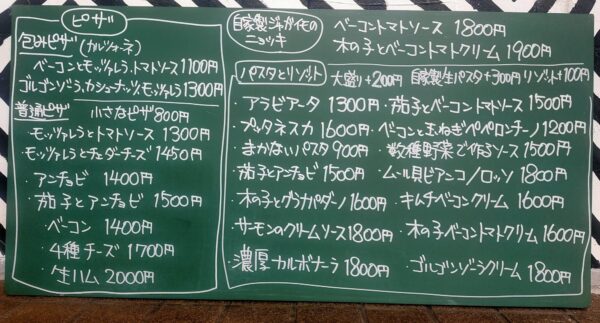 ピザ
包みピザ (カルツォーネ)
ベーコンとモッツァレラ、トマトソース 1100円
ゴルゴンゾーラ、カシューナッツ、モッツァレラ 1300円
普通ピザ 小さなピザ 800円
モッツァレラとトマトソース 1300円
モッツァレラとチェダーチーズ 1450円
・アンチョビ 1400円
・茄子とアンチョビ 1500円
・ベーコン 1400円
・4種チーズ 1700円
・生ハム 2000円
自家製ジャガイモのニョッキ
ベーコントマトソース 1800円
木の子とベーコントマトクリーム 1900円
パスタとリゾット 大盛り+200円 自家製生パスタ+300円 リゾット+100円
・アラビアータ 1300円 ・茄子とベーコントマトソース 1500円
・プッタネスカ 1600円 ・ベーコンと玉ねぎペペロンチーノ 1200円
・まかないパスタ 900円 ・数種野菜で作るソース 1500円
・茄子とアンチョビ 1500円 ・ムール貝ビアンコ/ロッソ 1800円
・木の子とグラナパダーノ 1600円 ・キムチベーコンクリーム 1600円
・サーモンのクリームソース 1800円 ・木の子ベーコントマトクリーム 1600円
・濃厚カルボナーラ 1800円 ・ゴルゴンゾーラクリーム 1800円